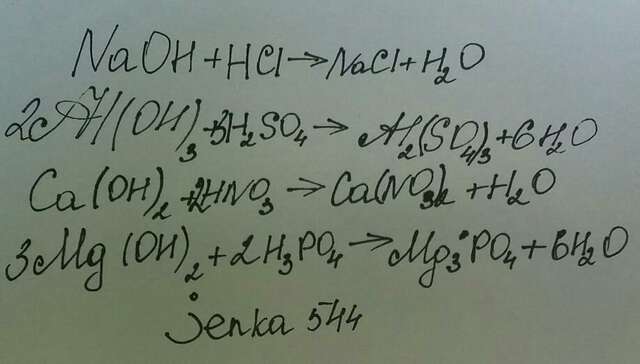 NaOH + HCl → NaCl + H₂O
2Al(OH)₃ + 3H₂SO₄ → Al₂(SO₄)₃ + 6H₂O
Ca(OH)₂ + 2HNO₃ → Ca(NO₃)₂ + H₂O
3Mg(OH)₂ + 2H₃PO₄ → Mg₃PO₄ + 6H₂O
jenka 544